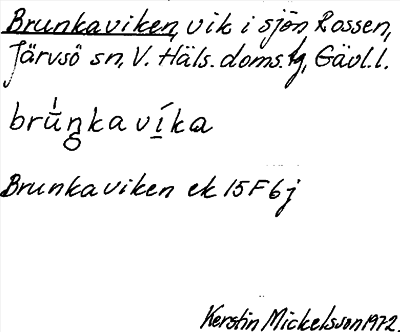 Brunkaviken, vik i sjön Rossen,
Järvsö sn, V. Häls. doms. tg, Gävl. l.
brúŋkavíka
Brunkaviken ek 15F6j
Kerstin Mickelsson 1972.